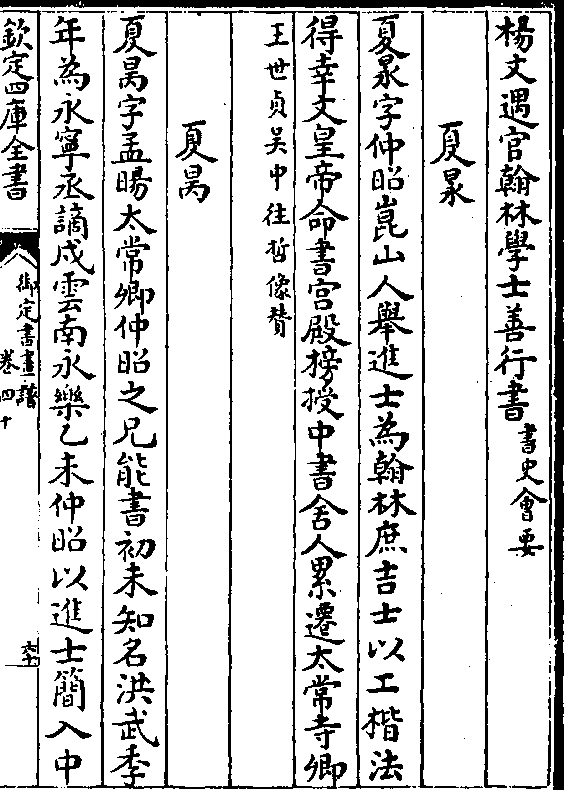 楊文遇官翰林學士善行書書史會要
夏㫤
夏㫤字仲昭崑山人舉進士為翰林庶吉士以工楷法
得幸文皇帝命書宫殿榜授中書舍人累遷太常寺卿
王世貞吳中往哲像贊
夏昺
夏昺字孟暘太常卿仲昭之兄能書初未知名洪武季
年為永寧丞謫戍雲南永樂乙未仲昭以進士簡入中
欽定四庫全書
御定書畫譜
卷四十